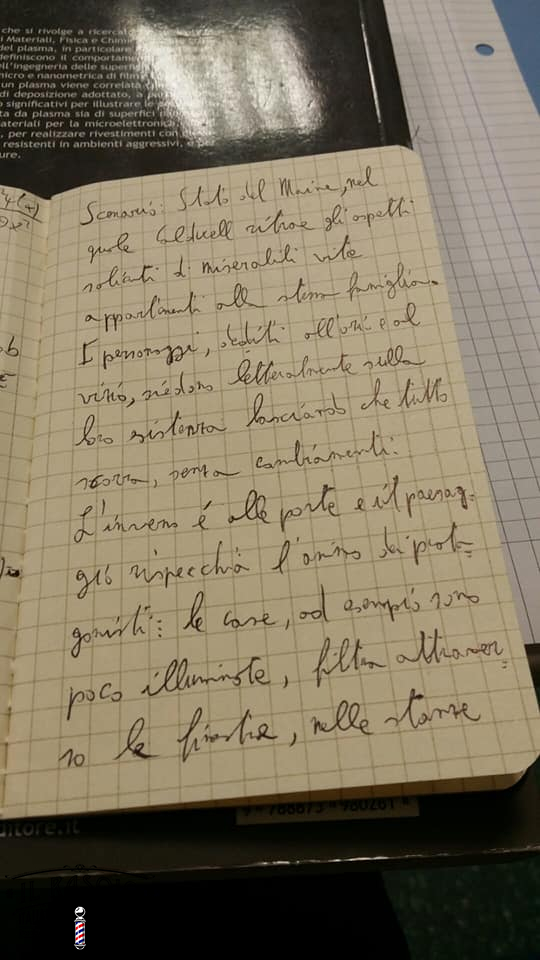 che si rivolge a ricercat
i Materiali, Fisica e Chimi
del plasma, in particolare
definiscono il comportame
ll'ingegneria delle superfi
micro e nanometrica di film
un plasma viene correlata
di deposizione adottato, a
o significativi per illustrare le
ta da plasma sia di superfici
ateriali per la microelettronica,
, per realizzare rivestimenti con
resistenti in ambienti aggressivi, e
ure.
Scenario: Stato del Maine, nel
quale Caldwell ritrae gli aspetti
salienti di miserabili vite
appartenenti alla stessa famiglia.
I personaggi, dediti all'ozio e al
vizio, siedono letteralmente sulla
loro esistenza lasciando che tutto
scorra, senza cambiamenti.
L'inverno è alle porte e il paesag-
gio rispecchia l'animo dei prota-
gonisti: le case, ad esempio sono
poco illuminate, filtra attraver-
so le finestre, nelle stanze
ditore.it
9 788873 980261